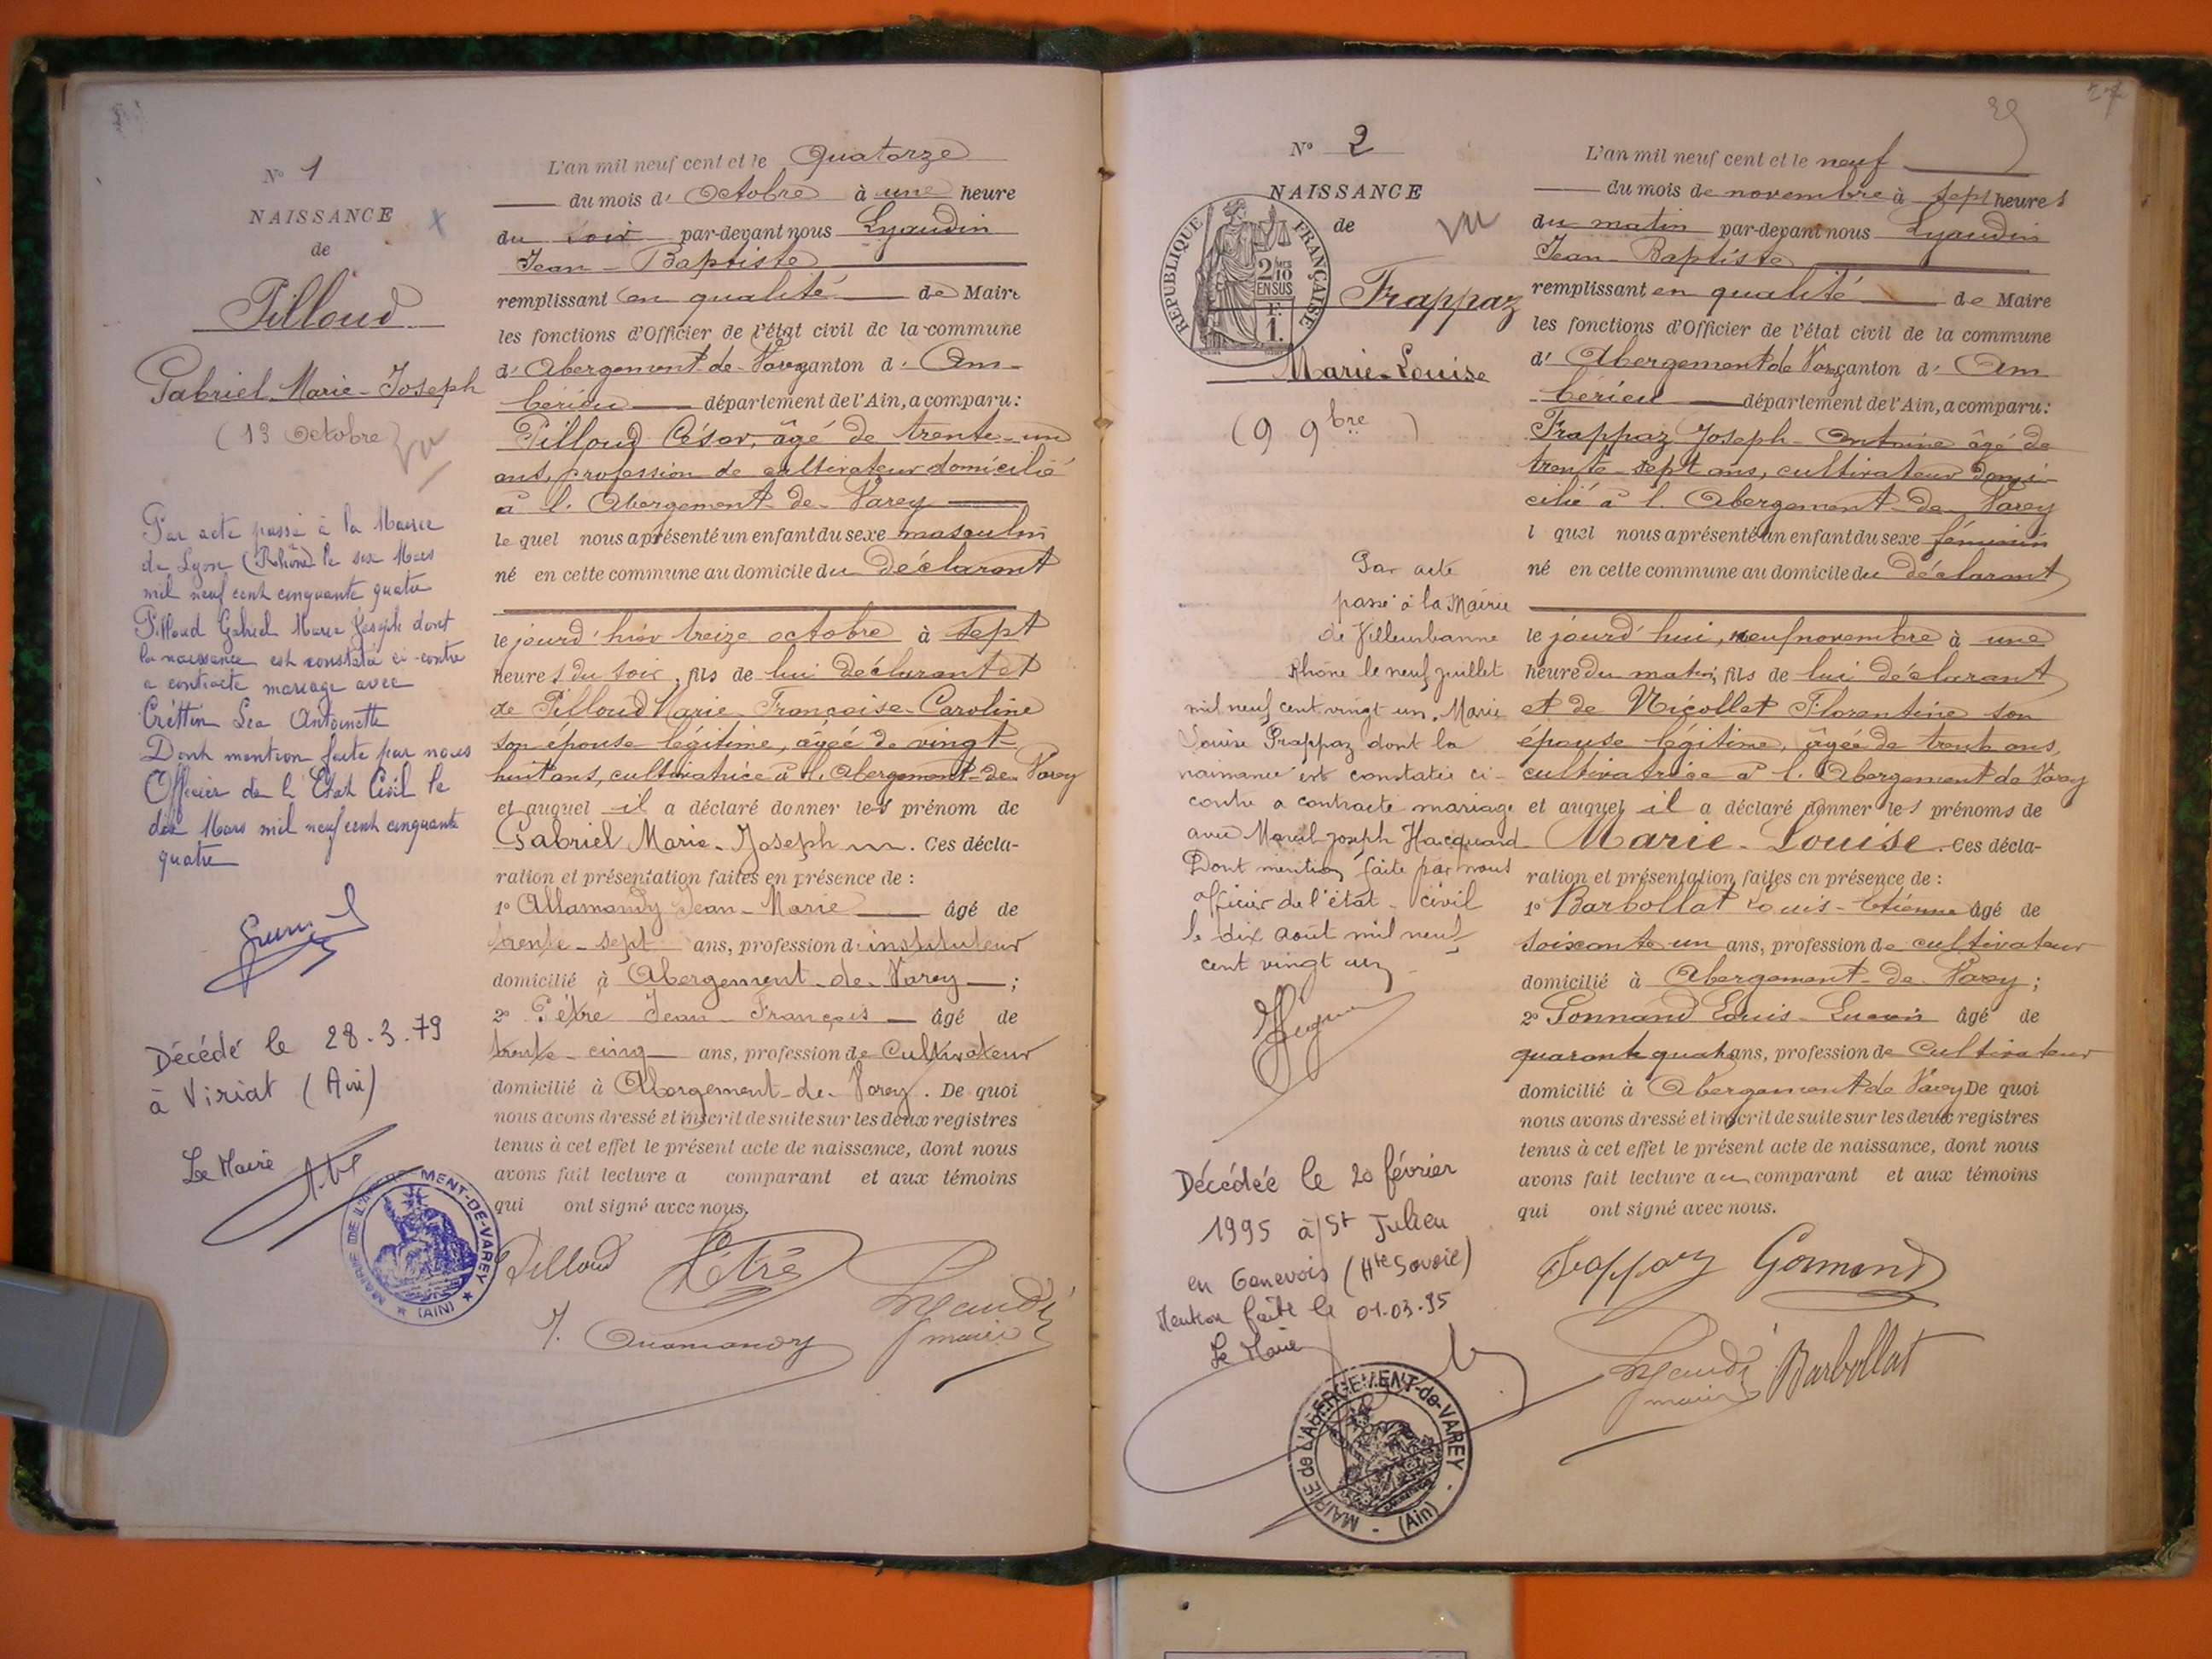 N° 1
NAISSANCE
de
Pilloud
Gabriel Marie-Joseph
(13 Octobre)
vu
Par acte passé à la Mairie
de Lyon (Rhône) le six Mars
mil neuf cent cinquante quatre
Pilloud Gabriel Marie Joseph dont
la naissance est constatée ci-contre
a contracté mariage avec
Crettin Léa Antoinette
Dont mention faite par nous
Officier de l'Etat Civil le
dix Mars mil neuf cent cinquante
quatre
Décédé le 28.3.79
à Viriat (Ain)
Le Maire
MAIRIE DE L'ABERGEMENT-DE-VAREY
(AIN)
L'an mil neuf cent et le Quatorze
du mois d'Octobre à une heure
du soir par-devant nous Lyaudin
Jean-Baptiste
remplissant en qualité de Maire
les fonctions d'Officier de l'état civil de la commune
d'Abergement-de-Varey canton d'Am-
bérieu département de l'Ain, a comparu:
Pilloud César, âgé de trente-un
ans, profession de cultivateur domicilié
à l'Abergement-de-Varey
le quel nous a présenté un enfant du sexe masculin
né en cette commune au domicile du déclarant
le jourd'hier treize octobre à sept
heures du soir, fils de lui déclarant et
de Pilloud Marie-Françoise-Caroline
son épouse légitime, âgée de vingt-
huit ans, cultivatrice à l'Abergement-de-Varey
et auquel il a déclaré donner les prénom de
Gabriel Marie-Joseph. Ces décla-
ration et présentation faites en présence de :
1° Allamandy Jean-Marie âgé de
trente-sept ans, profession d'instituteur
domicilié à Abergement-de-Varey ;
2° Pètre Jean-François âgé de
trente-cinq ans, profession de Cultivateur
domicilié à Abergement-de-Varey. De quoi
nous avons dressé et inscrit de suite sur les deux registres
tenus à cet effet le présent acte de naissance, dont nous
avons fait lecture a comparant et aux témoins
qui ont signé avec nous.
Pilloud Pètre
maire
N° 2
NAISSANCE
de
vu
REPUBLIQUE FRANÇAISE
2/10 EN SUS
F. 1.
Frappaz
Marie-Louise
(9 9bre)
Par acte
passé à la Mairie
de Villeurbanne
Rhône le neuf juillet
mil neuf cent vingt un, Marie
Louise Frappaz dont la
naissance est constatée ci-
contre a contracté mariage
avec Marcel Joseph Hacquard
Dont mention faite par nous
officier de l'état-civil
le dix août mil neuf
cent vingt un
Décédée le 20 février
1995 à St Julien
en Genevois (Hte Savoie)
Mention faite le 01.03.95
Le Maire
MAIRIE de L'ABERGEMENT-de-VAREY
(Ain)
L'an mil neuf cent et le neuf
du mois de novembre à sept heures
du matin par-devant nous Lyaudin
Jean-Baptiste
remplissant en qualité de Maire
les fonctions d'Officier de l'état civil de la commune
d'Abergement de Varey canton d'Am
bérieu département de l'Ain, a comparu:
Frappaz Joseph-Antoine âgé de
trente-sept ans, cultivateur domi-
cilié à l'Abergement-de-Varey
l quel nous a présenté un enfant du sexe féminin
né en cette commune au domicile du déclarant
le jourd'hui, neuf novembre à une
heure du matin, fils de lui déclarant
et de Nicollet Florentine son
épouse légitime, âgée de trente ans,
cultivatrice à l'Abergement de Varey
et auquel il a déclaré donner les prénoms de
Marie-Louise. Ces décla-
ration et présentation faites en présence de :
1° Barbollat Louis-Etienne âgé de
soixante un ans, profession de cultivateur
domicilié à Abergement-de-Varey ;
2° Gonnand Louis- âgé de
quarante quatre ans, profession de Cultivateur
domicilié à Abergement de Varey De quoi
nous avons dressé et inscrit de suite sur les deux registres
tenus à cet effet le présent acte de naissance, dont nous
avons fait lecture au comparant et aux témoins
qui ont signé avec nous.
Frappaz Gonnand
maire Barbollat